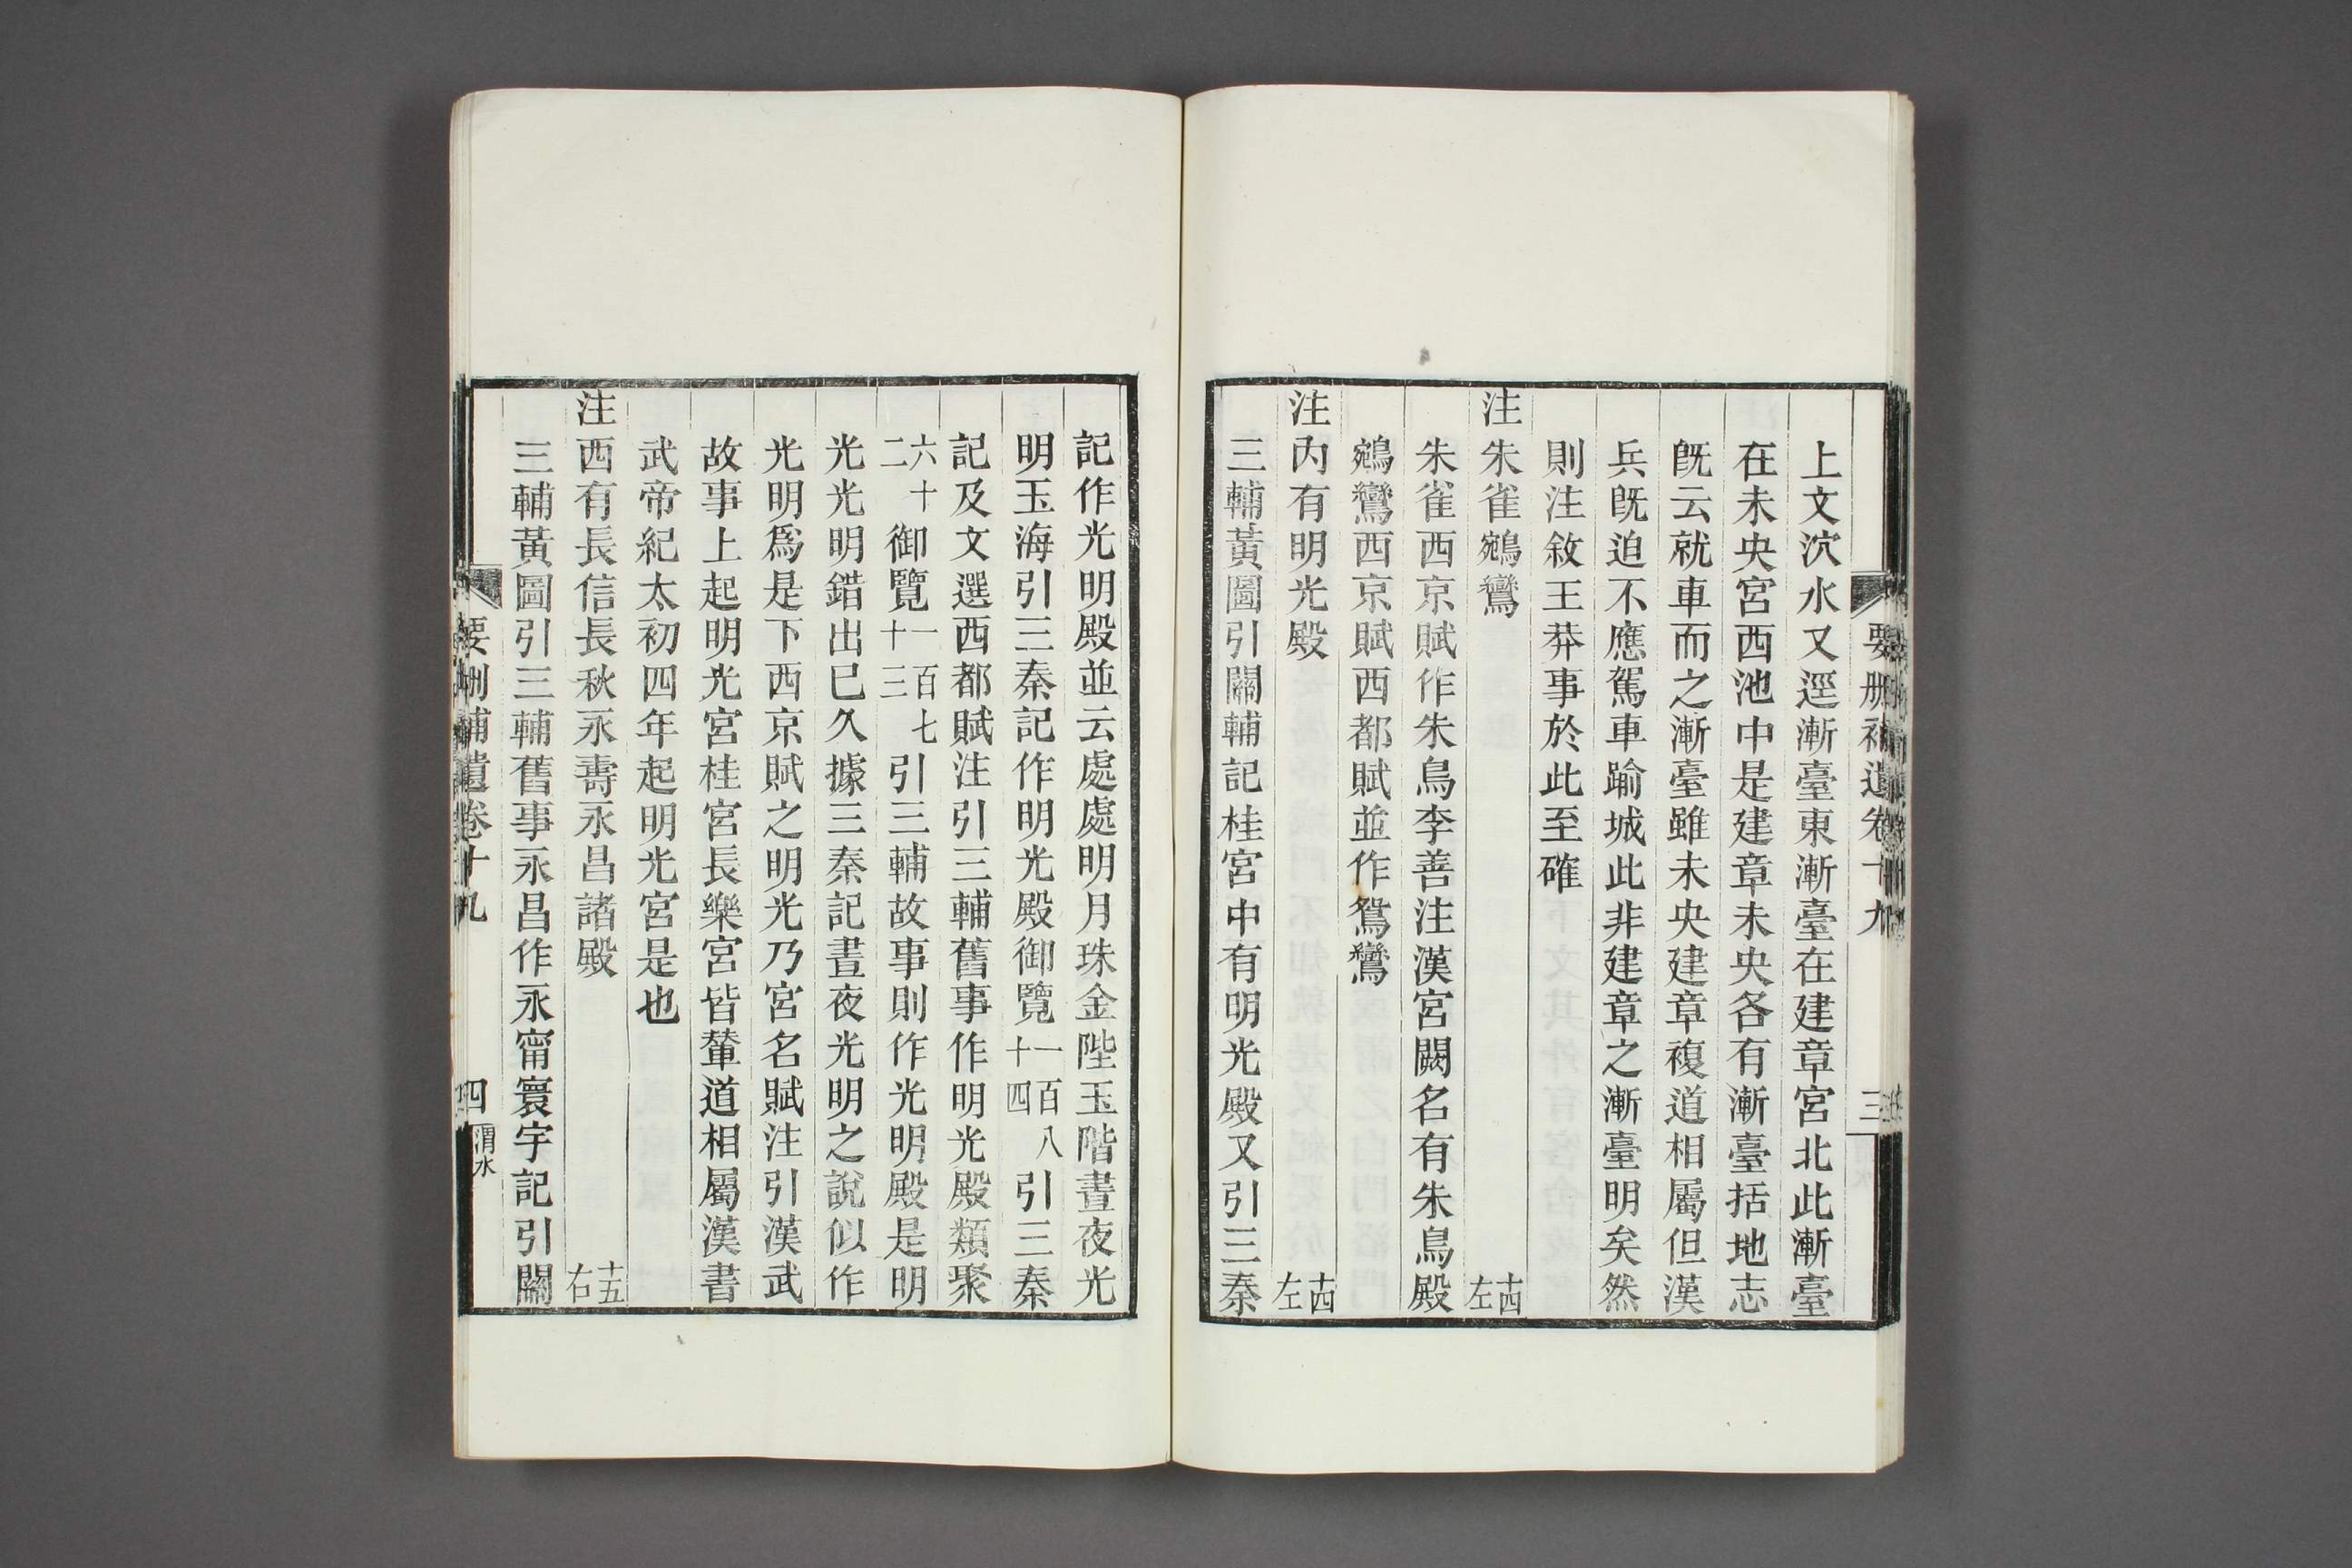 要刪補遺卷十九
三
上文泬水又逕漸臺東漸臺在建章宮北此漸臺
在未央宮西池中是建章未央各有漸臺括地志
旣云就車而之漸臺雖未央建章複道相屬但漢
兵旣迫不應駕車踰城此非建章之漸臺明矣然
則注敘王莽事於此至確
注朱雀鵷鸞 十四左
朱雀西京賦作朱鳥李善注漢宮闕名有朱鳥殿
鵷鸞西京賦西都賦並作鴛鸞
注內有明光殿 十四左
三輔黃圖引關輔記桂宮中有明光殿又引三秦
記作光明殿並云處處明月珠金陛玉階晝夜光
明玉海引三秦記作明光殿御覽一百八十四引三秦
記及文選西都賦注引三輔舊事作明光殿類聚
六十二御覽一百七十三引三輔故事則作光明殿是明
光光明錯出已久據三秦記晝夜光明之說似作
光明爲是下西京賦之明光乃宮名賦注引漢武
故事上起明光宮桂宮長樂宮皆輦道相屬漢書
武帝紀太初四年起明光宮是也
注西有長信長秋永壽永昌諸殿 十五右
三輔黃圖引三輔舊事永昌作永甯寰宇記引關
要刪補遺卷十九
四
渭水